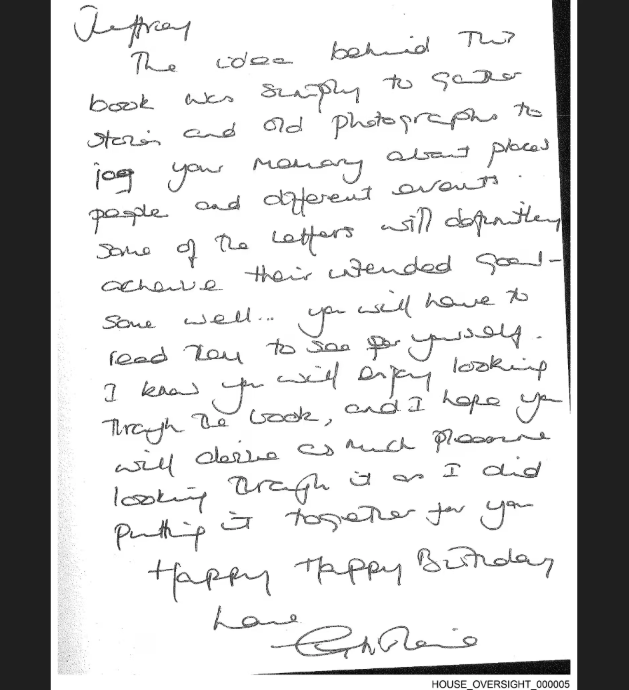 Jeffrey
The idea behind this
book was simply to gather
stories and old photographs to
jog your memory about places
people and different events.
Some of the letters will definitely
achieve their intended goal -
some well... you will have to
read them to see for yourself.
I know you will enjoy looking
through the book, and I hope you
will derive as much pleasure
looking through it as I did
putting it together for you
Happy Happy Birthday
Love
Ghislaine
HOUSE_OVERSIGHT_000005